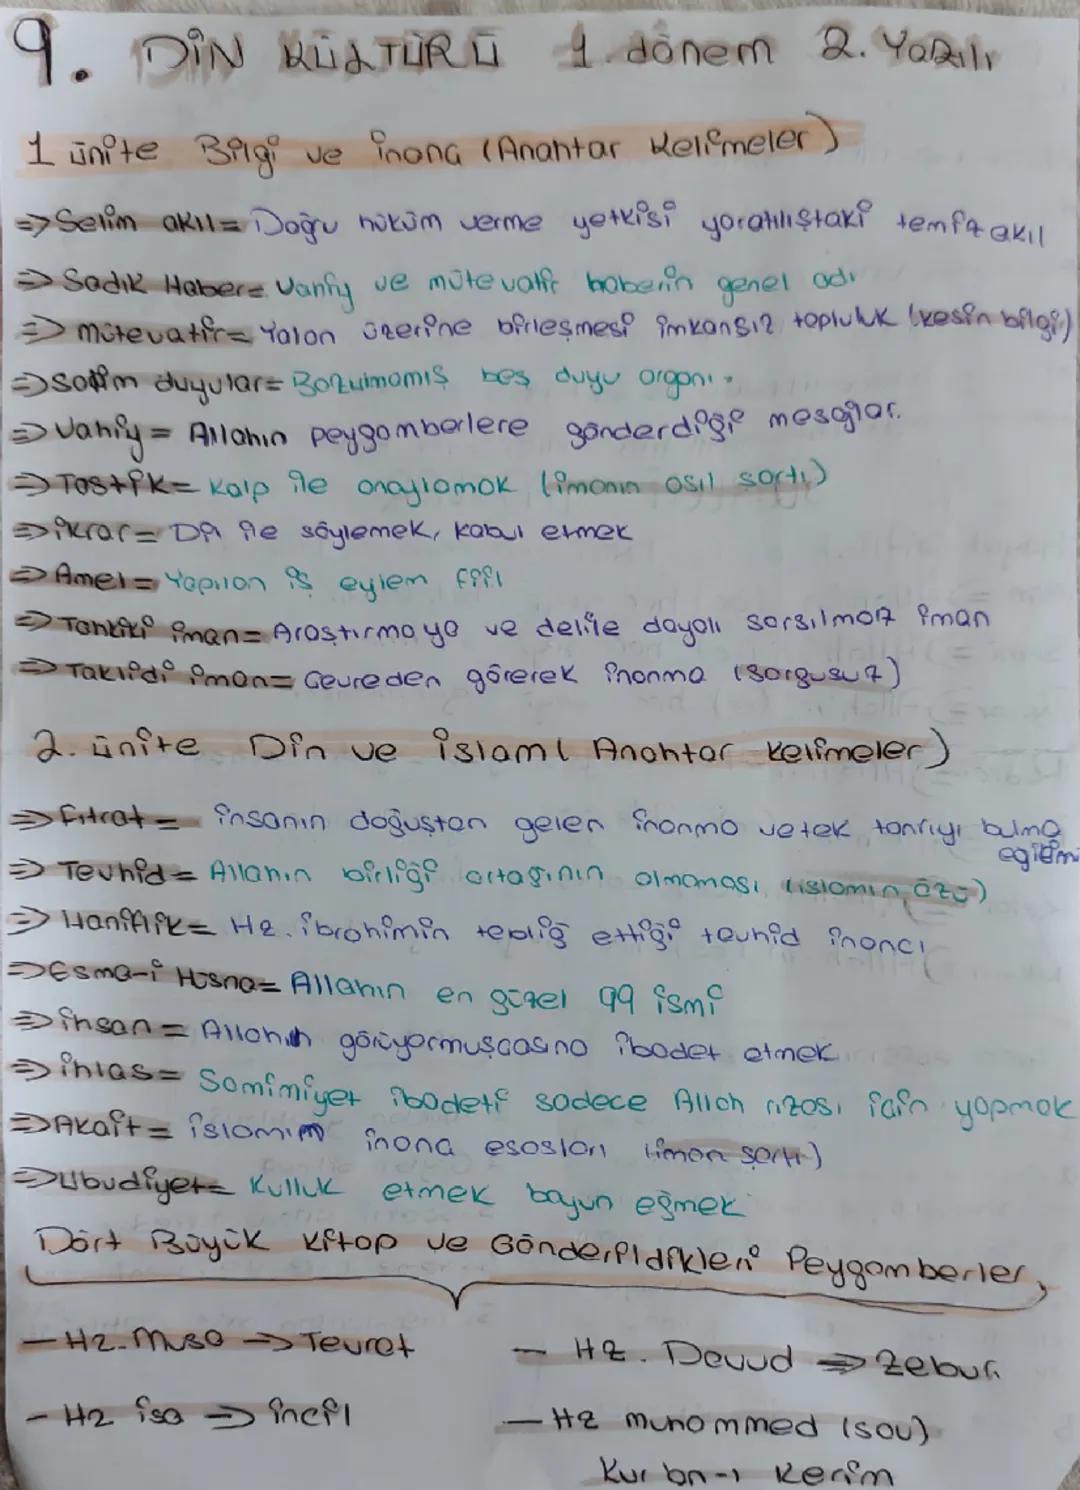 9. DİN KÜLTÜRÜ 1. dönem 2. Yazılı
1 ünite Bilgi ve inanç (Anahtar Kelimeler)
=> Selim akıl = Doğru hüküm verme yetkisi yaratılıştaki temiz akıl
=> Sadık Haber = Vahiy ve mütevatir haberin genel adı
=> mütevatir = Yalan üzerine birleşmesi imkansız topluluk (kesin bilgi)
=> Salim duyular = Bozulmamış beş duyu organı.
=> Vahiy = Allahın peygamberlere gönderdiği mesajlar.
=> Tastik = Kalp ile onaylamak (imanın asıl şartı)
=> ikrar = Dil ile söylemek, kabul etmek
=> Amel = Yapılan iş eylem fiil
=> Tahkiki iman = Araştırmaya ve delile dayalı sarsılmaz iman
=> Taklidi iman = Çevreden görerek inanma (sorgusuz)
2. ünite Din ve islam ( Anahtar Kelimeler)
=> Fıtrat = insanın doğuştan gelen inanma ve tek tanrıyı bulma eğilimi
=> Tevhid = Allahın birliği ortağının olmaması (islamın özü)
=> Haniflik = Hz. ibrahimin tebliğ ettiği tevhid inancı
=> Esma-i Hüsna = Allahın en güzel 99 ismi
=> ihsan = Allahın görüyormuşcasına ibadet etmek
=> ihlas = Samimiyet ibadeti sadece Allah rızası için yapmak
=> Akait = islamım inanç esasları (iman şartı)
=> Ubudiyet = Kulluk etmek boyun eğmek
Dört Büyük Kitap ve Gönderildikleri Peygamberler
- Hz. Musa -> Tevrat - Hz. Davud => Zebur
- Hz isa => incil - Hz muhammed (sav)
Kur'an-ı Kerim